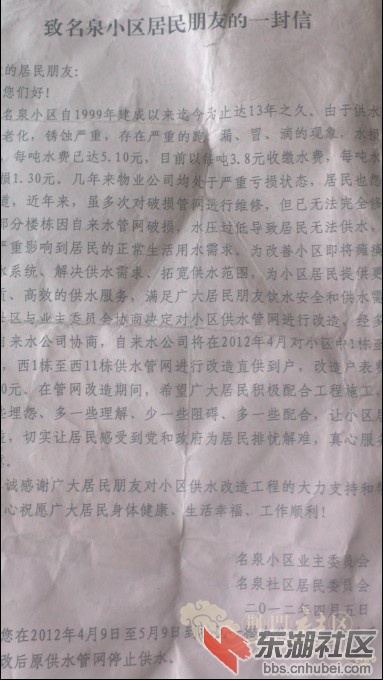 致名泉小区居民朋友的一封信
的居民朋友:
您们好!
名泉小区自1999年建成以来迄今为止达13年之久。由于供水
老化，锈蚀严重，存在严重的跑、漏、冒、滴的现象，水损
，每吨水费已达5.10元，目前以每吨3.8元收缴水费，每吨水
损1.30元。几年来物业公司均处于严重亏损状态，居民也怨
道，近年来，虽多次对破损管网进行维修，但已无法完全修
部分楼栋因自来水管网破损，水压过低导致居民无法供水，
严重影响到居民的正常生活用水需求。为改善小区即将瘫痪
水系统、解决供水需求、拓宽供水范围，为小区居民提供更
质、高效的供水服务，满足广大居民饮水安全和供水需
社区与业主委员会协商决定对小区供水管网进行改造，经多
自来水公司协商，自来水公司将在2012年4月对小区中1栋至
，西1栋至西11栋供水管网进行改造直供到户，改造户表费
0元。在管网改造期间，希望广大居民积极配合工程施工，
些埋怨、多一些理解、少一些阻碍、多一些配合，让小区居
，切实让居民感受到党和政府为居民排忧解难，真心服务
诚感谢广大居民朋友对小区供水改造工程的大力支持和
心祝愿广大居民身体健康、生活幸福、工作顺利!
名泉小区业主委员会
名泉社区居民委员会
二〇一二年四月五日
您在2012年4月9日至5月9日到
改后原供水管网停止供水。
荆门社区
东湖社区
bbs.cnhubei.com